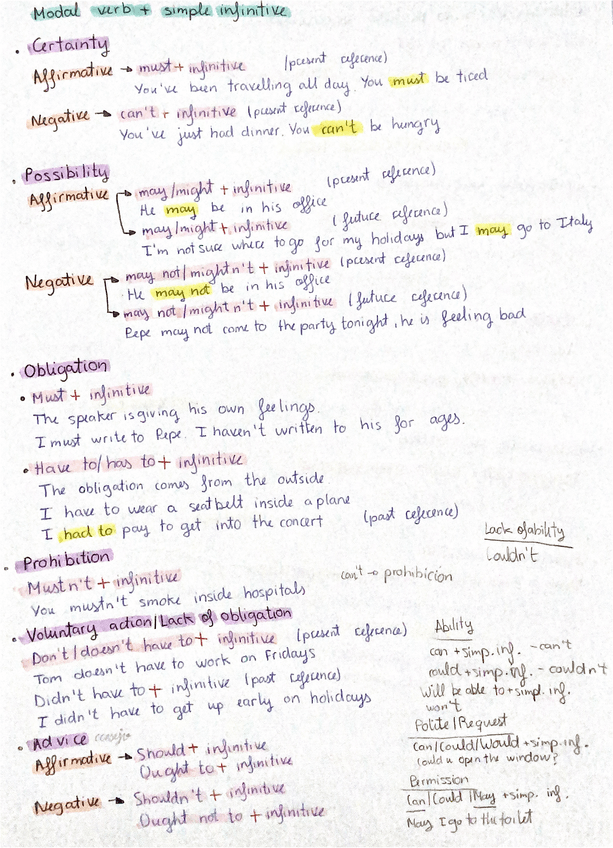 Modal verb + simple infinitive
• Certainty
Affirmative → must + infinitive (present reference)
You've been travelling all day. You must be tired
Negative → can't + infinitive (present reference)
You've just had dinner. You can't be hungry
• Possibility
Affirmative → may/might + infinitive (present reference)
He may be in his office
→ may/might + infinitive (future reference)
I'm not sure where to go for my holidays but I may go to Italy
Negative → may not/mightn't + infinitive (present reference)
He may not be in his office
→ may not/mightn't + infinitive (future reference)
Pepe may not come to the party tonight, he is feeling bad
• Obligation
• Must + infinitive
The speaker is giving his own feelings.
I must write to Pepe. I haven't written to his for ages.
• Have to/has to + infinitive
The obligation comes from the outside
I have to wear a seatbelt inside a plane
I had to pay to get into the concert (past reference)
• Prohibition
Mustn't + infinitive can't → prohibicion
You mustn't smoke inside hospitals
• Voluntary action/Lack of obligation
Don't/doesn't have to + infinitive (present reference)
Tom doesn't have to work on Fridays
Didn't have to + infinitive (past reference)
I didn't have to get up early on holidays
• Advice consejo
Affirmative → Should + infinitive
Ought to + infinitive
Negative → Shouldn't + infinitive
Ought not to + infinitive
Lack of ability
Couldn't
Ability
can + simp. inf. - can't
could + simp. inf. - couldn't
Will be able to + simpl. inf.
won't
Polite/Request
Can/Could/Would + simp. inf.
Could u open the window?
Permission
Can/Could/May + simp. inf.
May I go to the toilet